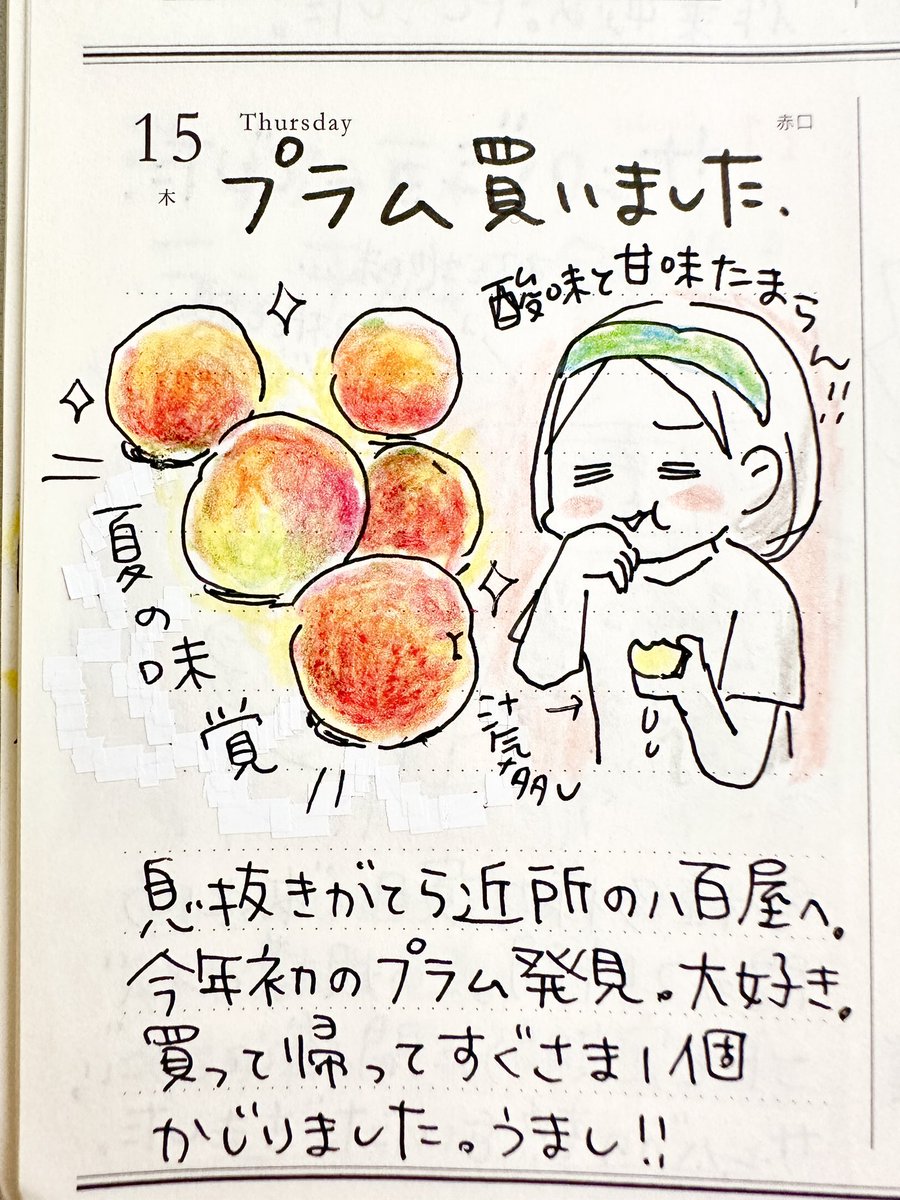 15 Thursday 赤口
木
プラム買いました、
酸味と甘味たまらん!!
夏の味覚!!
息抜きがてら近所の八百屋へ。
今年初のプラム発見。大好き。
買って帰ってすぐさま1個
かじりました。うまし!!